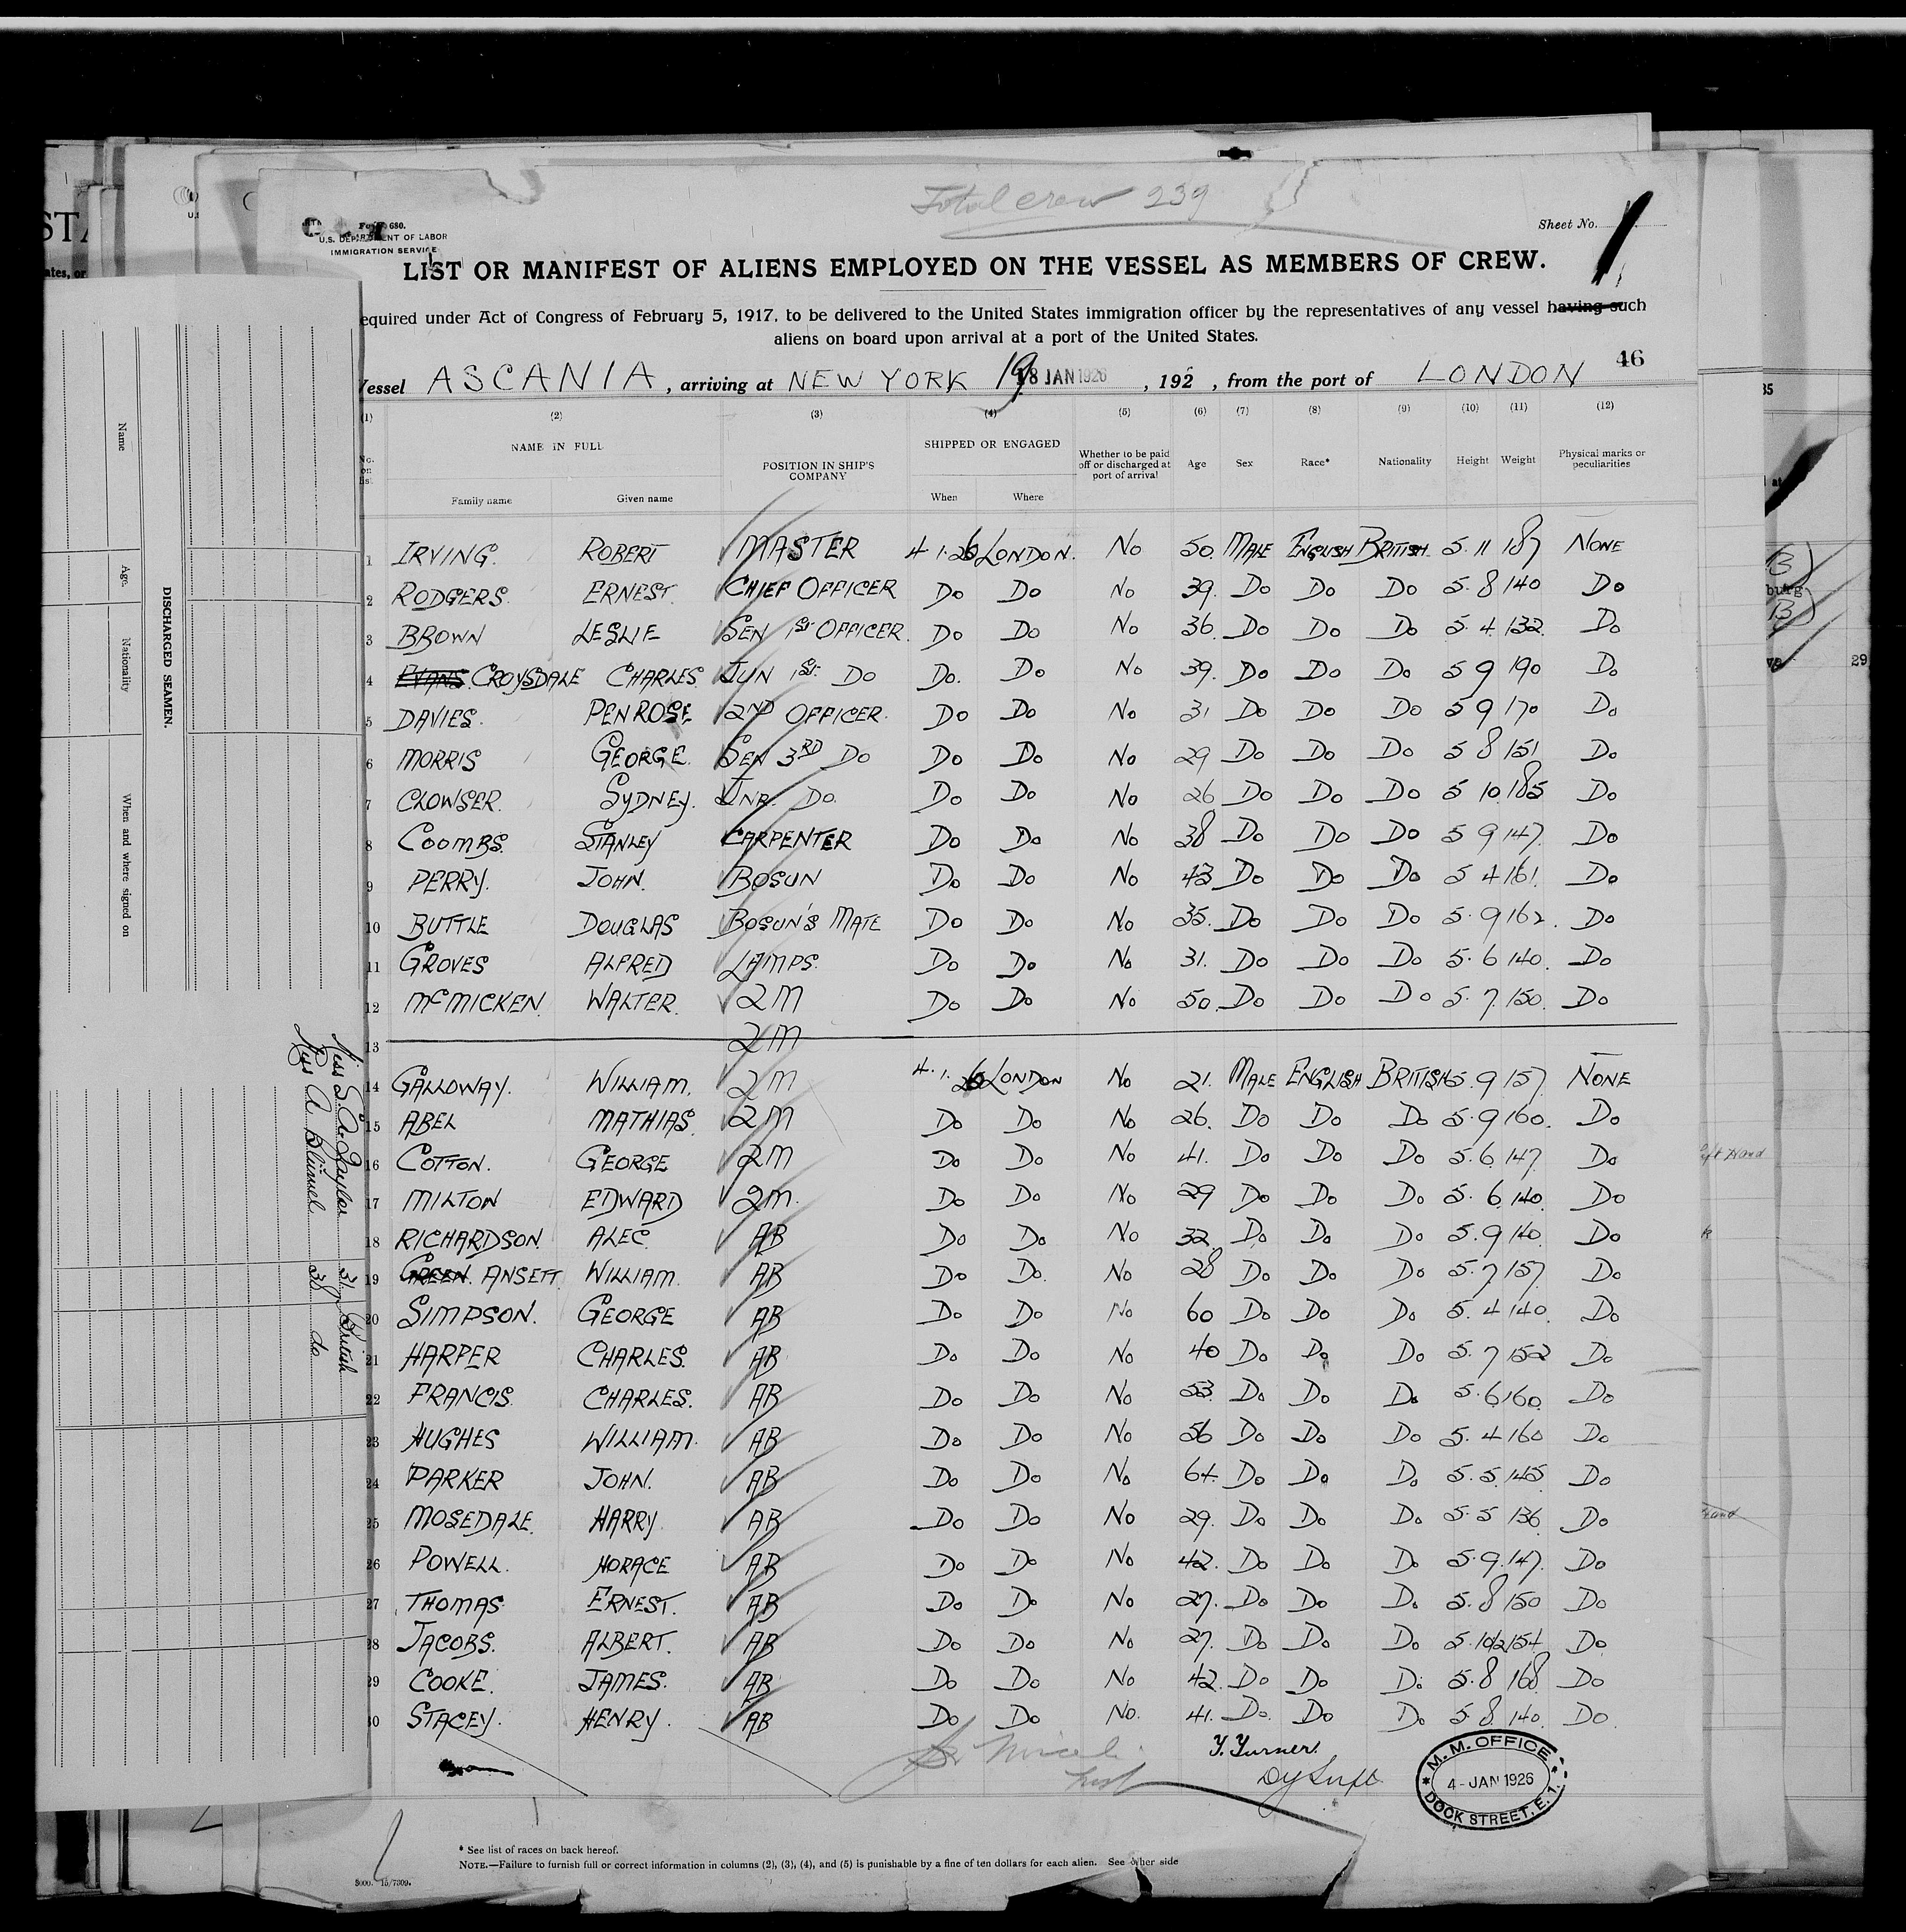 Total crew 239
Form 680.
U.S. DEPARTMENT OF LABOR
IMMIGRATION SERVICE
Sheet No. 1
LIST OR MANIFEST OF ALIENS EMPLOYED ON THE VESSEL AS MEMBERS OF CREW.
equired under Act of Congress of February 5, 1917, to be delivered to the United States immigration officer by the representatives of any vessel having such
aliens on board upon arrival at a port of the United States.
46
Vessel ASCANIA, arriving at NEW YORK 19 18 JAN 1926, 192 , from the port of LONDON
(1) (2) (3) (4) (5) (6) (7) (8) (9) (10) (11) (12)
No. on list NAME IN FULL POSITION IN SHIP'S COMPANY SHIPPED OR ENGAGED Whether to be paid off or discharged at port of arrival Age Sex Race* Nationality Height Weight Physical marks or peculiarities
Family name Given name When Where
1 IRVING. ROBERT MASTER 4 1. 26 LONDON. No 50. MALE ENGLISH BRITISH. 5. 11 187 NONE
2 RODGERS. ERNEST. CHIEF OFFICER Do Do No 39. Do Do Do 5. 8 140 Do
3 BROWN LESLIE SEN 1ST OFFICER. Do Do No 36. Do Do Do 5. 4. 132. Do
4 EVANS. CROYSDALE CHARLES. JUN 1ST. DO Do. Do No 39. Do Do Do 5 9 190 Do
5 DAVIES. PENROSE 2ND OFFICER. Do Do No 31 Do Do Do 5 9 170 Do
6 MORRIS GEORGE. SEN 3RD DO Do Do No 29 Do Do Do 5 8 151 Do
7 CLOWSER. SYDNEY. JNR. DO. Do Do No 26 Do Do Do 5 10. 185 Do
8 COOMBS. STANLEY CARPENTER Do Do No 38 Do Do Do 5 9 147. Do
9 PERRY. JOHN. BOSUN Do Do No 43 Do Do Do 5 4 161. Do
10 BUTTLE DOUGLAS BOSUN'S MATE Do Do No 35. Do Do Do 5. 9 162. Do
11 GROVES ALFRED LAMPS. Do Do No 31. Do Do Do 5. 6 140. Do
12 McMICKEN. WALTER. 2M Do Do No 50. Do Do Do 5. 7. 150. Do
13 2M
14 GALLOWAY. WILLIAM. 2M 4. 1. 26 LONDON No 21. MALE ENGLISH BRITISH 5. 9 157. NONE
15 ABEL MATHIAS. 2M Do Do No 26. Do Do Do 5. 9 160. Do
16 COTTON. GEORGE 2M Do Do No 41. Do Do Do 5. 6. 147. Do
17 MILTON EDWARD 2M. Do Do No 29 Do Do Do 5. 6. 140. Do
18 RICHARDSON. ALEC. AB Do Do No 32. Do Do Do 5. 9 140. Do
19 GREEN. ANSETT. WILLIAM. AB Do Do. No 28 Do Do Do 5. 7 157. Do
20 SIMPSON. GEORGE AB Do Do No 60 Do Do Do 5. 4 140. Do
21 HARPER CHARLES. AB Do Do No 40 Do Do Do 5. 7 152 Do
22 FRANCIS. CHARLES. AB Do Do No 53. Do Do Do 5. 6 160. Do
23 HUGHES WILLIAM. AB Do Do No 56 Do Do Do 5. 4 160 Do
24 PARKER JOHN. AB Do Do No 64. Do Do Do 5. 5. 145 Do
25 MOSEDALE. HARRY. AB Do Do No 29. Do Do Do 5. 5 136 Do
26 POWELL. HORACE AB Do Do No 42. Do Do Do 5. 9. 147. Do
27 THOMAS ERNEST. AB Do Do No 27. Do Do Do 5. 8 150 Do
28 JACOBS. ALBERT. AB Do Do No 27. Do Do Do 5. 10½ 154 Do
29 COOKE. JAMES. AB Do Do No 42. Do Do Do 5. 8 168 Do
30 STACEY. HENRY. AB Do Do No. 41. Do. Do Do 5 8. 140. Do.
Y. Turner.
Dy Supt
M. M. OFFICE
4 - JAN 1926
DOCK STREET, E. 1.
* See list of races on back hereof.
NOTE.—Failure to furnish full or correct information in columns (2), (3), (4), and (5) is punishable by a fine of ten dollars for each alien. See other side
5000. 15/7309.
DISCHARGED SEAMEN.
Name Age. Nationality When and where signed on
Miss S. A. Taylor 31 British
Miss A. Blümel 38 do
29